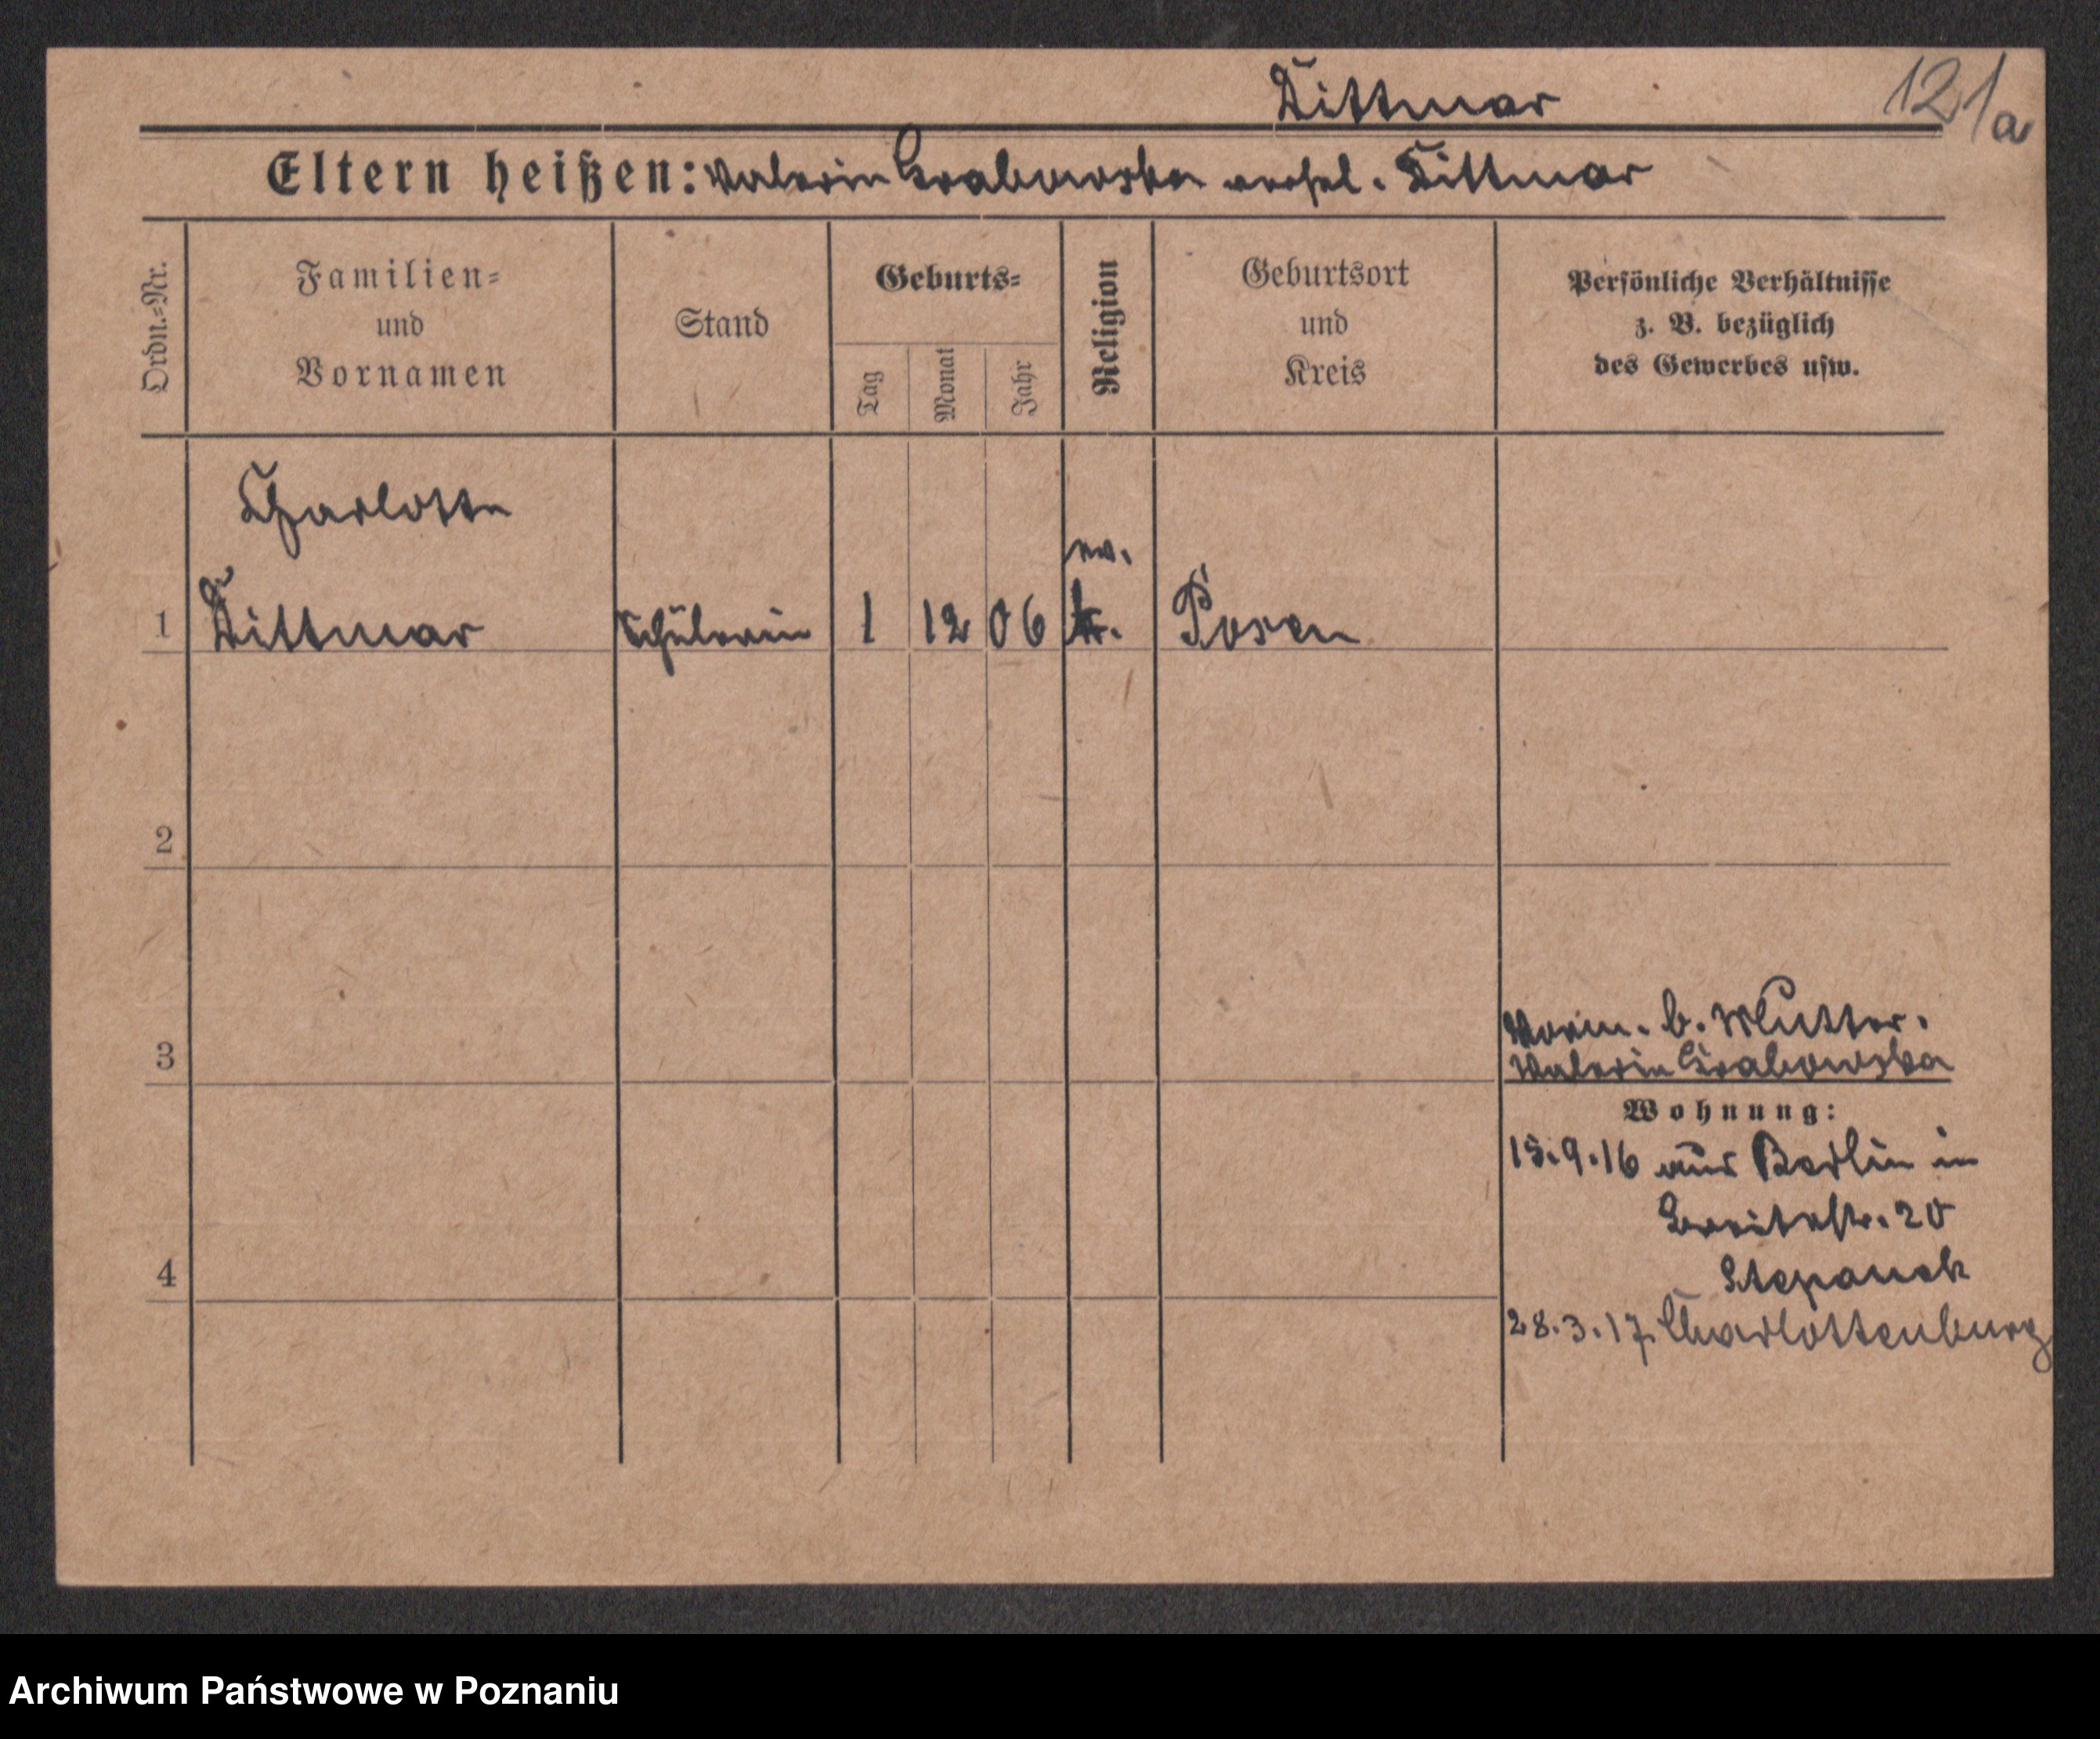 Dittmar
121a
Eltern heißen: Valerie Grabowska verehel. Dittmar
Ordn.-Nr.
Familien-
und
Vornamen
Stand
Geburts-
Tag
Monat
Jahr
Religion
Geburtsort
und
Kreis
Persönliche Verhältnisse
z. B. bezüglich
des Gewerbes usw.
Charlotte
ev.
1 Dittmar Schülerin 1 12 06 Posen
2
3
Vorm. b. Mutter.
Valerie Grabowska
Wohnung:
15.9.16 aus Berlin in
Breitestr. 20
4
Stepanek
28.3.17. Charlottenburg
Archiwum Państwowe w Poznaniu